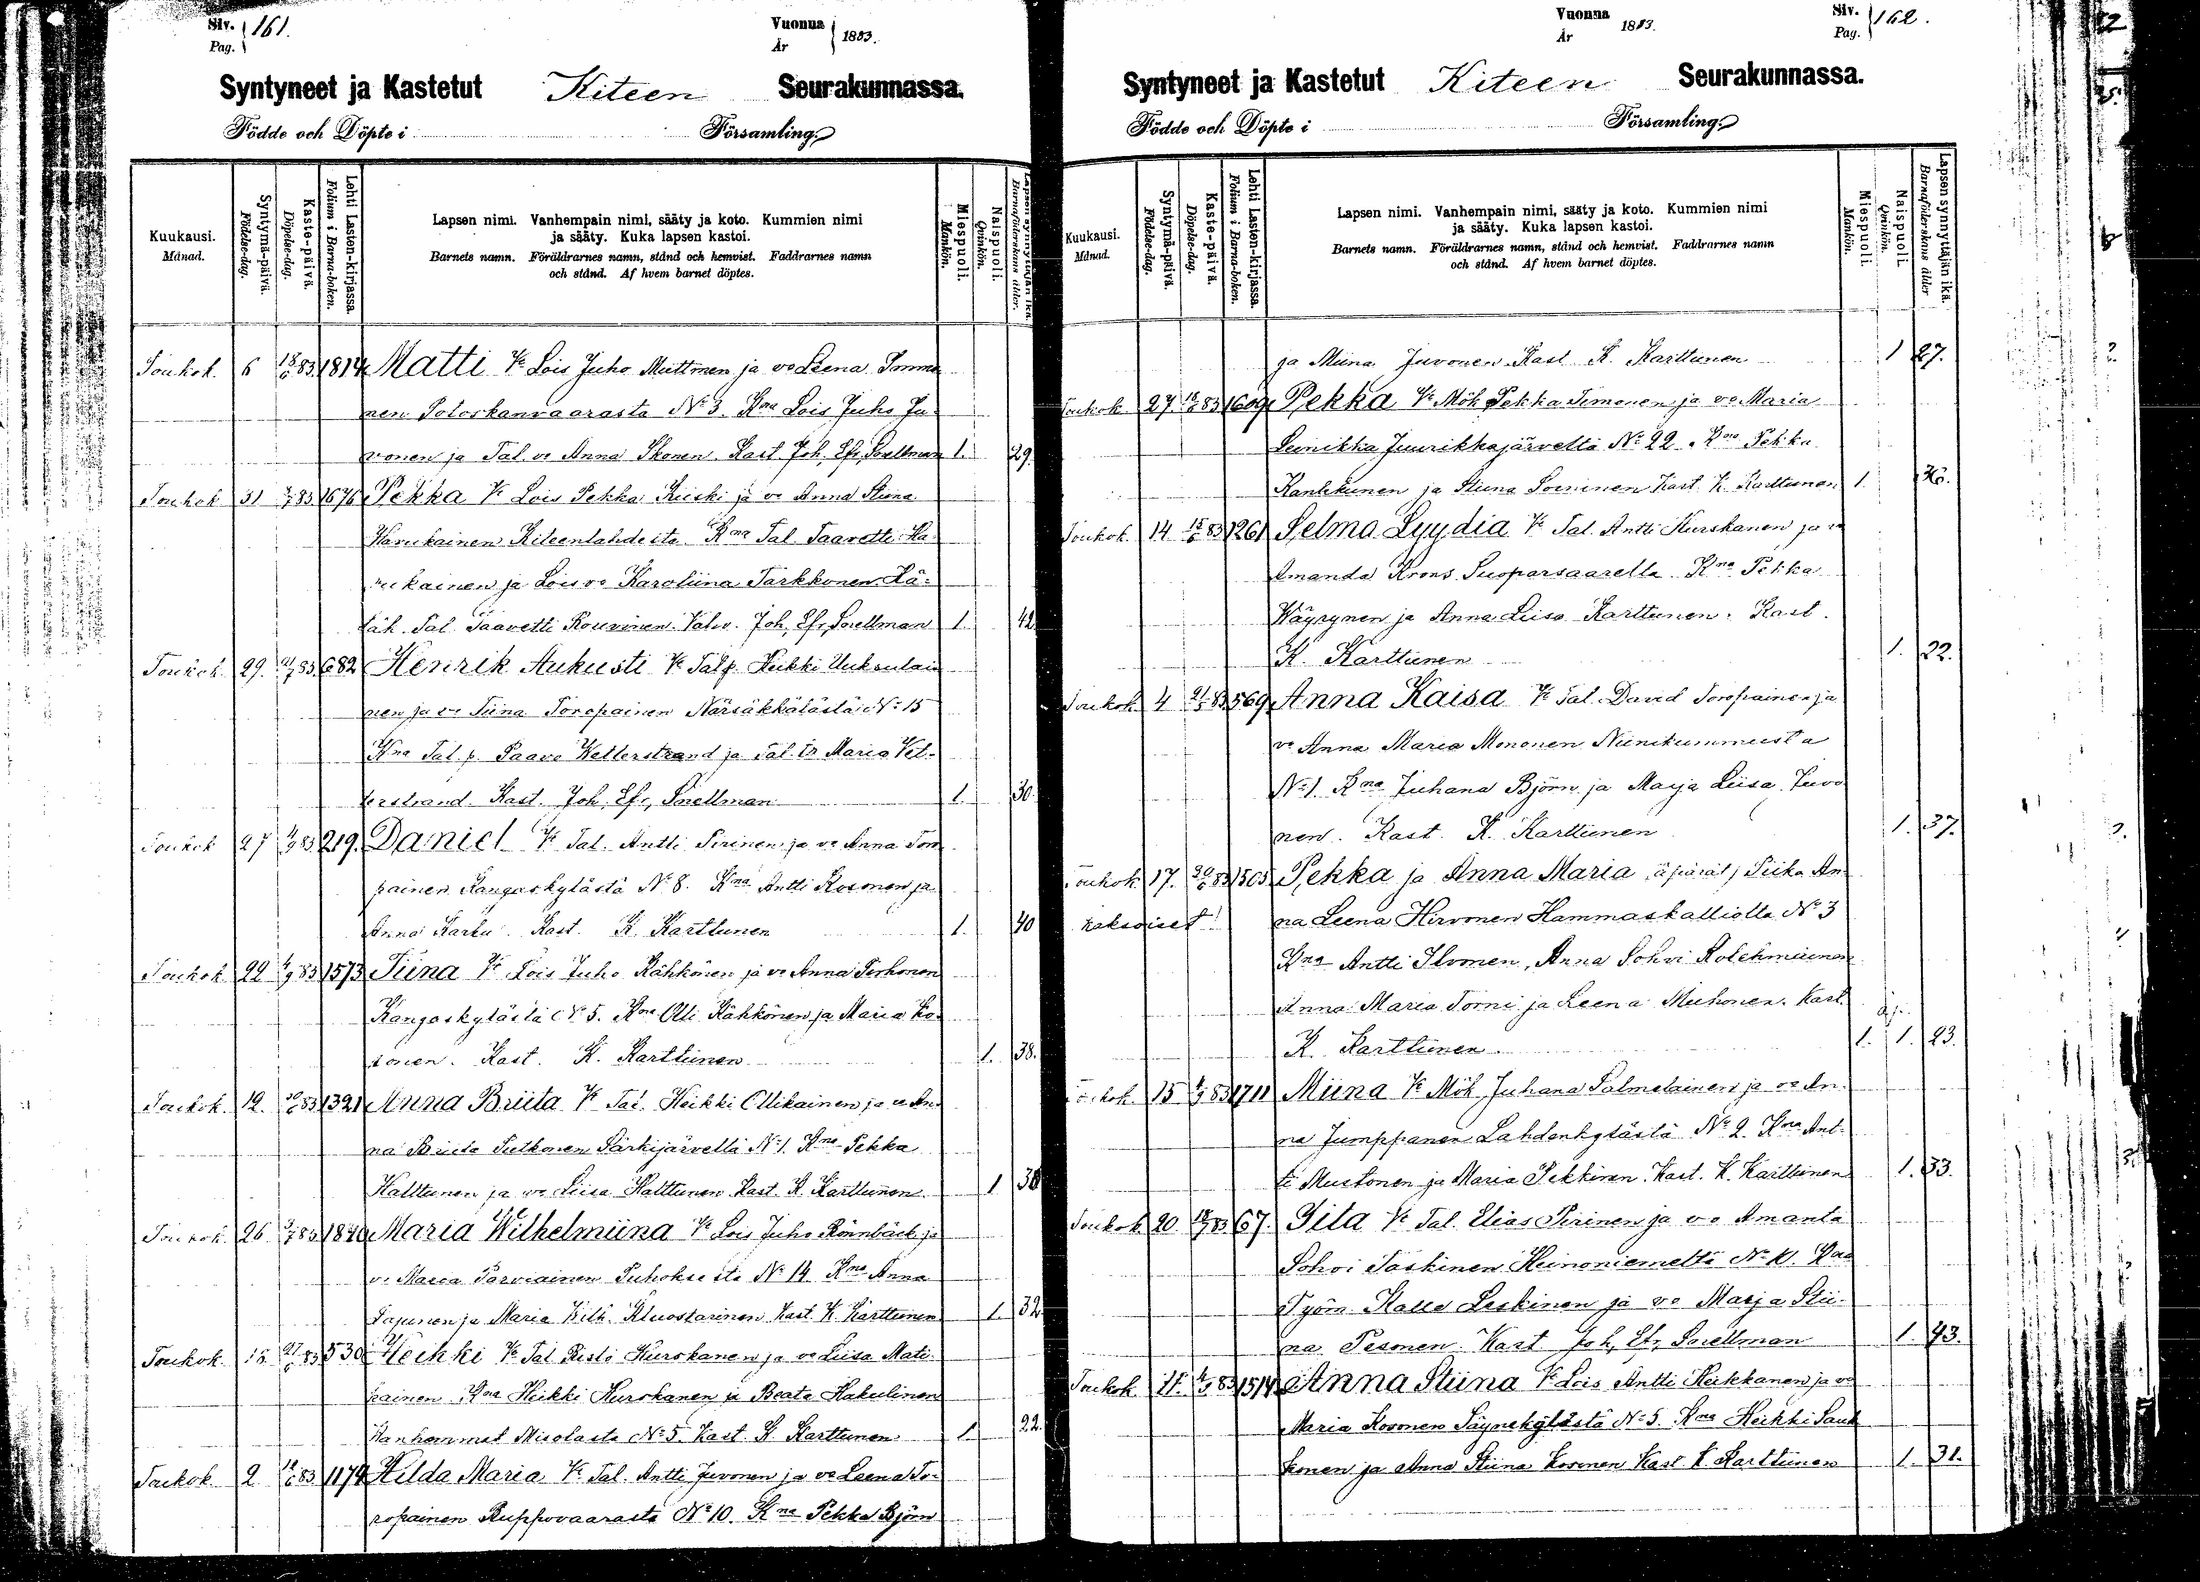 Siv. Pag. 161.
Vuonna År 1883.
Syntyneet ja Kastetut Kiteen Seurakunnassa.
Födde och Döpte i Församling.
Kuukausi. Månad.
Syntymä-päivä. Födelse-dag.
Kaste-päivä. Döpelse-dag.
Lehti Lasten-kirjassa. Folium i Barna-boken.
Lapsen nimi. Vanhempain nimi, sääty ja koto. Kummien nimi
ja sääty. Kuka lapsen kastoi.
Barnets namn. Föräldrarnes namn, stånd och hemvist. Faddrarnes namn
och stånd. Af hvem barnet döptes.
Miespuoli. Mankön.
Naispuoli. Qvinkön.
Lapsen synnyttäjän ikä. Barnaföderskans ålder.
Toukok. 6 83 1814 Matti Vt Lois Juho Muttonen ja vo Leena Immo
nen Potoskanvaarasta No 3 Kna Lois Juho Ju
vonen ja Tal. vo Anna Ikonen. Kast. Joh. Efr. Snellman 1. 29.
Toukok 31 83 1676 Pekka Vt Lois Pekka Kiiski ja vo Anna Stiina
Havukainen Kiteenlahdesta Kna Tal Taavetti Ha
vukainen ja Lois vo Karoliina Tarkkonen Hä-
täk. Tal. Taavetti Rouvinen. Vahv. Joh. Efr. Snellman 1. 42
Toukok 29. 83 682 Henrik Aukusti Vt Talp. Heikki Uuksulai
nen ja vo Tiina Toropainen Närsäkkälästä No 15
Kna Tal. p. Paavo Wetterstrand ja Tal. tr Maria Vet-
terstrand. Kast. Joh. Efr. Snellman 1. 30
Toukok 27 83 219. Daniel Vt Tal. Antti Pirinen ja vo Anna Toro
painen Kangaskylästä No 8. Kna Antti Kosonen ja
Anna Karhu. Kast. K. Karttunen 1. 40
Toukok 22 83 1573 Tiina Vt Lois Juho Kähkönen ja vo Anna Tirhonen
Kangaskylästä No 5. Kna Olli Kähkönen ja Maria Ko
sonen. Kast. K. Karttunen 1. 38.
Toukok. 12. 83 1321 Anna Briita Vt Tal. Heikki Ollikainen ja vo An
na Briita Sutkonen Särkijärveltä No 1. Kna Pekka
Halttunen ja vo Liisa Halttunen Kast. K. Karttunen. 1 38
Toukok. 26 83 1840 Maria Wilhelmiina Vt Lois Juho Rönnbäck ja
vo Maria Parviainen Puhoksesta No 14 Kna Anna
Tapunen ja Maria Wilh. Kluostarinen Kast. K. Karttunen 1. 32
Toukok. 83 530 Heikki Vt Tal Risto Hurskanen ja vo Liisa Mati
kainen Kna Heikki Hurskanen ja Beata Hakulinen
Wanhemmat Misolasta No 5. Kast. K. Karttunen 1. 22.
Toukok. 2 83 1174 Hilda Maria Vt Tal. Antti Juvonen ja vo Leena To-
ropainen Ruppovaarasta No 10. Kna Pekka Björn
Vuonna År 1883.
Siv. Pag. 162.
Syntyneet ja Kastetut Kiteen Seurakunnassa.
Födde och Döpte i Församling.
Kuukausi. Månad.
Syntymä-päivä. Födelse-dag.
Kaste-päivä. Döpelse-dag.
Lehti Lasten-kirjassa. Folium i Barna-boken.
Lapsen nimi. Vanhempain nimi, sääty ja koto. Kummien nimi
ja sääty. Kuka lapsen kastoi.
Barnets namn. Föräldrarnes namn, stånd och hemvist. Faddrarnes namn
och stånd. Af hvem barnet döptes.
Miespuoli. Mankön.
Naispuoli. Qvinkön.
Lapsen synnyttäjän ikä. Barnaföderskans ålder
ja Miina Juvonen Kast K. Karttunen 1 27.
Toukok 27 83 1609 Pekka Vt Mök Pekka Timonen ja vo Maria
Leinikka Juurikkajärveltä No 22. Kna Pekka
Kankkunen ja Stiina Soininen Kast. K. Karttunen 1.
Toukok 14 83 1261 Selma Lyydia Vt Tal. Antti Kurskanen ja vo
Amanda Krons Suoparsaarella. Kna Pekka
Wäyrynen ja Anna Liisa Karttunen. Kast.
K. Karttunen 1. 22.
Toukok 4 83 569 Anna Kaisa Vt Tal. David Toropainen ja
vo Anna Maria Mononen Niinikummusta
No 1 Kna Juhana Björn ja Marja Liisa Juvo
nen. Kast. K. Karttunen 1. 37.
Toukok 17. 83 1503 Pekka ja Anna Maria, äpärät, Piika An
kaksoiset! na Leena Hirvonen Hammaskalliolta No 3
Kna Antti Ilvonen, Anna Sohvi Kolehmainen
Anna Maria Torni ja Leena Muhonen. Kast. äp.
K. Karttunen. 1. 1. 23.
Toukok. 15 83 1711 Miina Vt Mök Juhana Palmelainen ja vo An-
na Jumppanen Lahdenkylästä No 2. Kna Ant-
ti Mustonen ja Maria Pekkinen. Kast. K. Karttunen 1. 33.
Toukok. 20 83 67. Iita Vt Tal. Elias Pirinen ja vo Amanta
Sohvi Taskinen Heinoniemeltä Kna
Työm. Kalle Leskinen ja vo Marja Stii-
na Pesonen. Kast Joh. Efr. Snellman 1. 43.
Toukok 83 1514 Anna Stiina Vt Lois Antti Heikkanen ja vo
Maria Kosonen Täynekylästä No 5. Kna Heikki Sauk
konen ja Anna Stiina Kosonen Kast. K. Karttunen 1. 31.